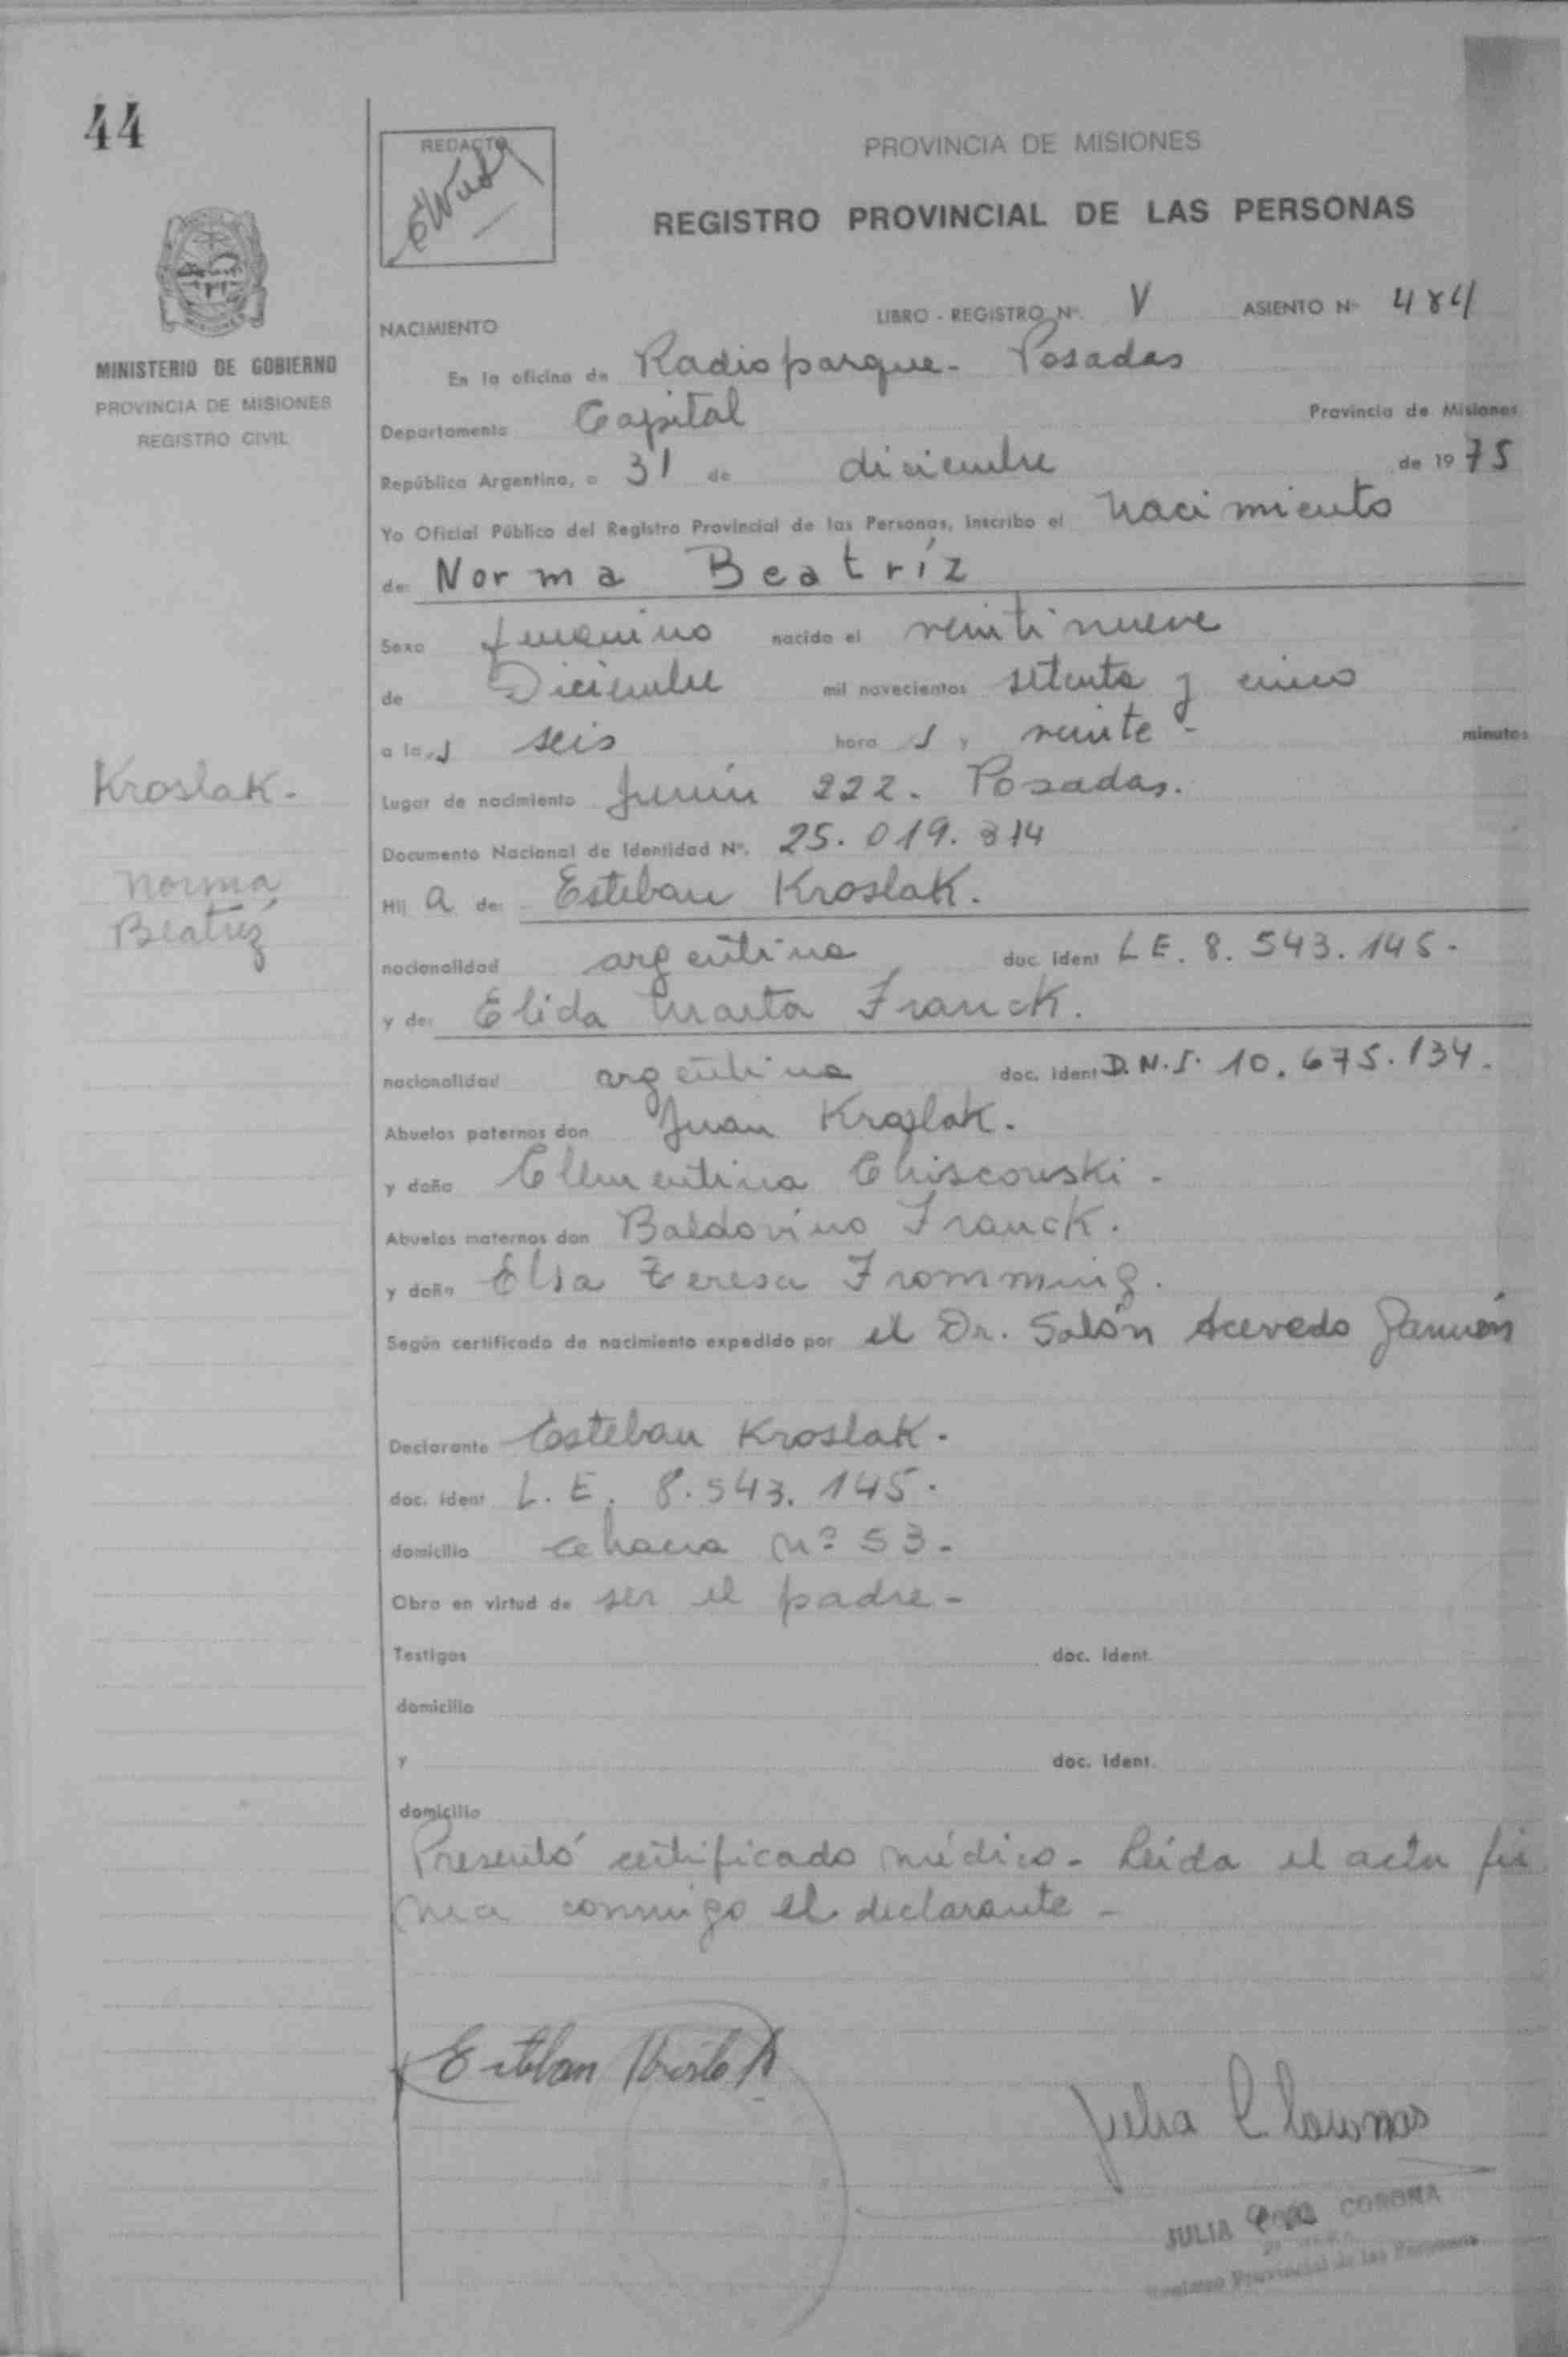 44
REDACTO
PROVINCIA DE MISIONES
REGISTRO PROVINCIAL DE LAS PERSONAS
MINISTERIO DE GOBIERNO
PROVINCIA DE MISIONES
REGISTRO CIVIL
NACIMIENTO LIBRO - REGISTRO Nº. V ASIENTO Nº 484
En la oficina de Radioparque - Posadas
Departamento Capital Provincia de Misiones
República Argentina, a 31 de diciembre de 1975
Yo Oficial Público del Registro Provincial de las Personas, inscribo el nacimiento
de: Norma Beatríz
Sexo femenino nacido el veintinueve
de Diciembre mil novecientos setenta y cinco
a las seis horas y veinte - minutos
Kroslak.-
Lugar de nacimiento Junín 222. Posadas.
Documento Nacional de Identidad Nº. 25.019.814
Norma
Beatríz
Hija de: Esteban Kroslak.
nacionalidad argentina doc. ident L E. 8.543.145-
y de: Elida Marta Franck.
nacionalidad argentina doc. ident D.N.I. 10.675.134.
Abuelos paternos don Juan Kroslak.
y doña Clementina Chiscowski -
Abuelos maternos don Baldovino Franck.
y doña Elsa Teresa Fromming.
Según certificado de nacimiento expedido por el Dr. Solón Acevedo
Declarante Esteban Kroslak.
doc. ident L. E. 8.543.145.
domicilio chacra nº 53-
Obra en virtud de ser el padre-
Testigos doc. Ident.
domicilio
y doc. Ident.
domicilio
Presentó certificado médico - Leída el acta fir
ma conmigo el declarante -
Esteban Kroslak
Julia
JULIA CORONA
Registro Provincial de las Personas